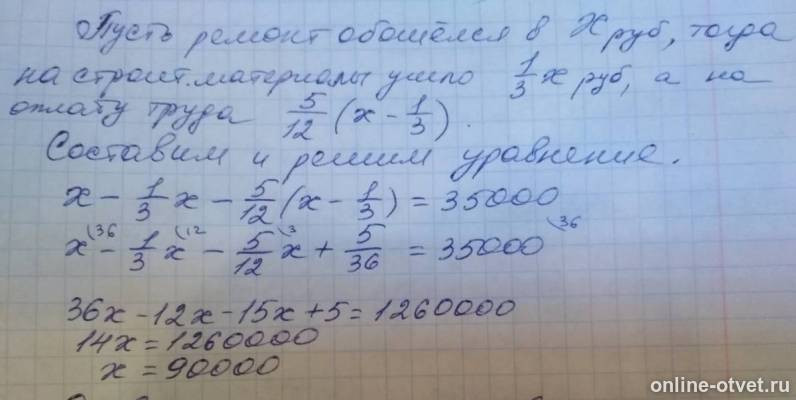 Пусть ремонт обошёлся в x руб, тогда
на строит. материалы ушло 1/3 x руб, а на
оплату труда 5/12 (x - 1/3).
Составим и решим уравнение.
x - 1/3 x - 5/12 (x - 1/3) = 35000
x\36 - 1/3 x\12 - 5/12 x\3 + 5/36 = 35000\36
36x - 12x - 15x + 5 = 1260000
14x = 1260000
x = 90000
online-otvet.ru